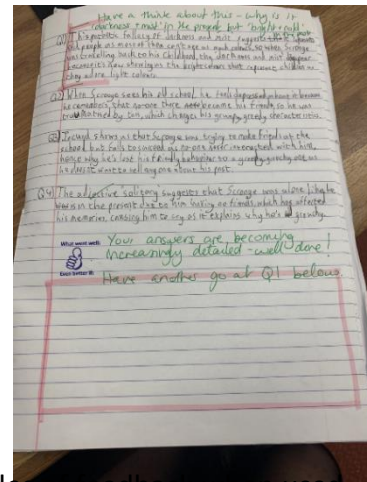 Have a think about this - why is it
darkness + mist in the present but "bright + cold"
in the past
Q1) This pathetic fallacy of darkness and mist suggests that
old people as most of them can't see as much colours, so when Scrooge
was travelling back to his Childhood, the darkness and mist disappear
because it's now showing us the bright colours that represent children as
they adore light colours.
Q2) When Scrooge sees his old school, he feels depressed
he remembers that no-one there became his friends, so he was
by
Q3) It shows us that Scrooge was trying to make friends at the
school but failed to succeed as no one interacted with him,
hence why he's lost his friendly behavior to a grumpy grouchy one as
he didn't want to tell anyone about his past.
Q4) The adjective solitary suggests that Scrooge was alone like he
was in the present due to him having no friends, which has affected
his memories, causing him to cry as it explains why he's grouchy.
What went well:
Your answers are becoming
increasingly detailed - well done!
Even better if:
Have another go at Q1 below